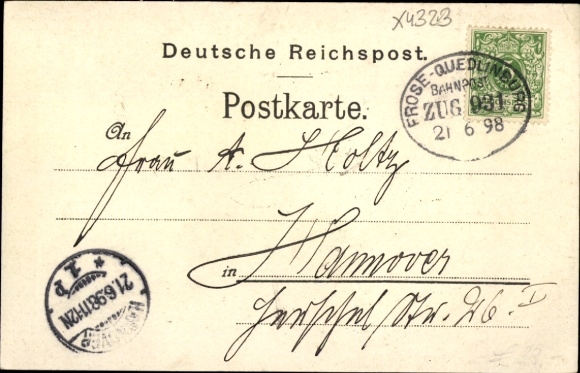 X4323
Deutsche Reichspost.
Postkarte.
FROSE-QUEDLINBURG
BAHNPOST
ZUG 931
21 6 98
An
Frau A. Holtz
in Hannover
Herschel Str. 26 I
HANNOVER
21.6.98.11-12N
* 1 P